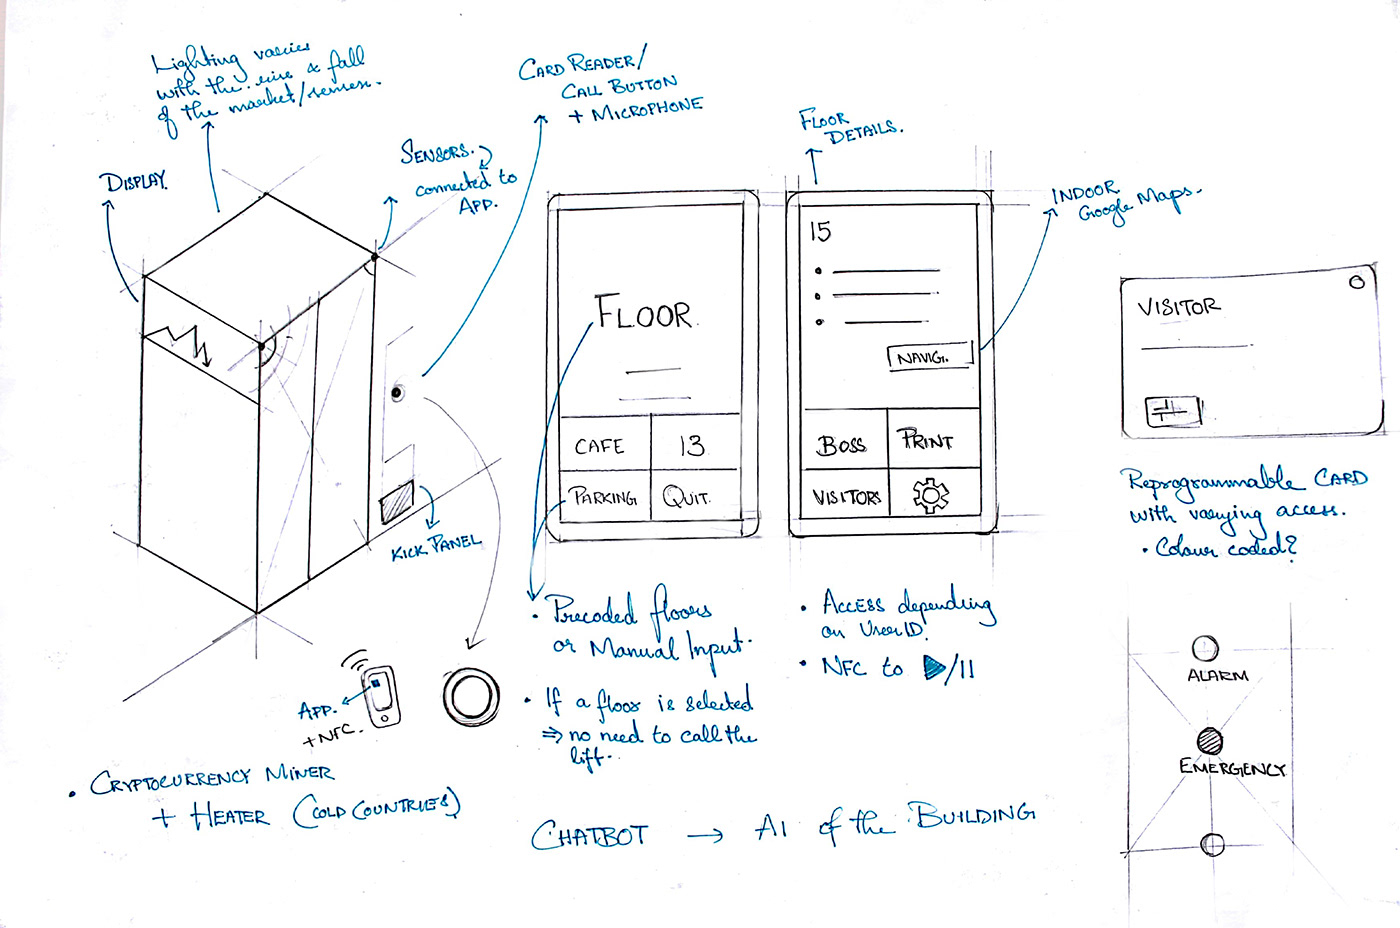 Lighting varies
with the rise & fall
of the market/sensex.
DISPLAY.
SENSORS.
connected to
APP.
CARD READER/
CALL BUTTON
+ MICROPHONE
KICK PANEL
APP.
+NFC.
• CRYPTOCURRENCY MINER
+ HEATER (COLD COUNTRIES)
FLOOR
CAFE
13
PARKING
QUIT.
• Precoded floors
or Manual Input.
• If a floor is selected
⇒ no need to call the
lift.
FLOOR
DETAILS.
15
NAVIG.
BOSS
PRINT
VISITORS
INDOOR
Google Maps.
• ACCESS depending
on UserID.
• NFC to ▶/II
CHATBOT → AI of the BUILDING
VISITOR
Reprogrammable CARD
with varying access.
• Colour coded?
ALARM
EMERGENCY